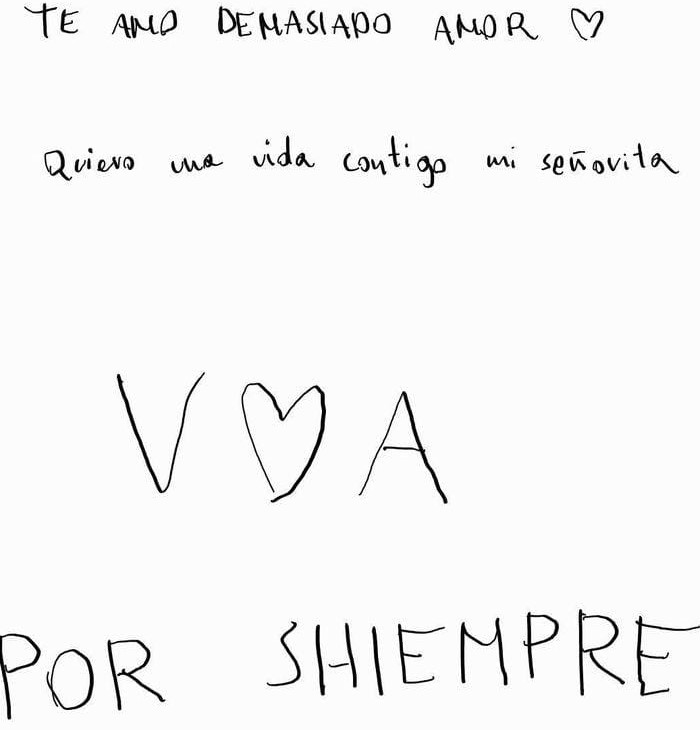 TE AMO DEMASIADO AMOR ♡
Quiero una vida contigo mi señorita
V ♡ A
POR SHIEMPRE